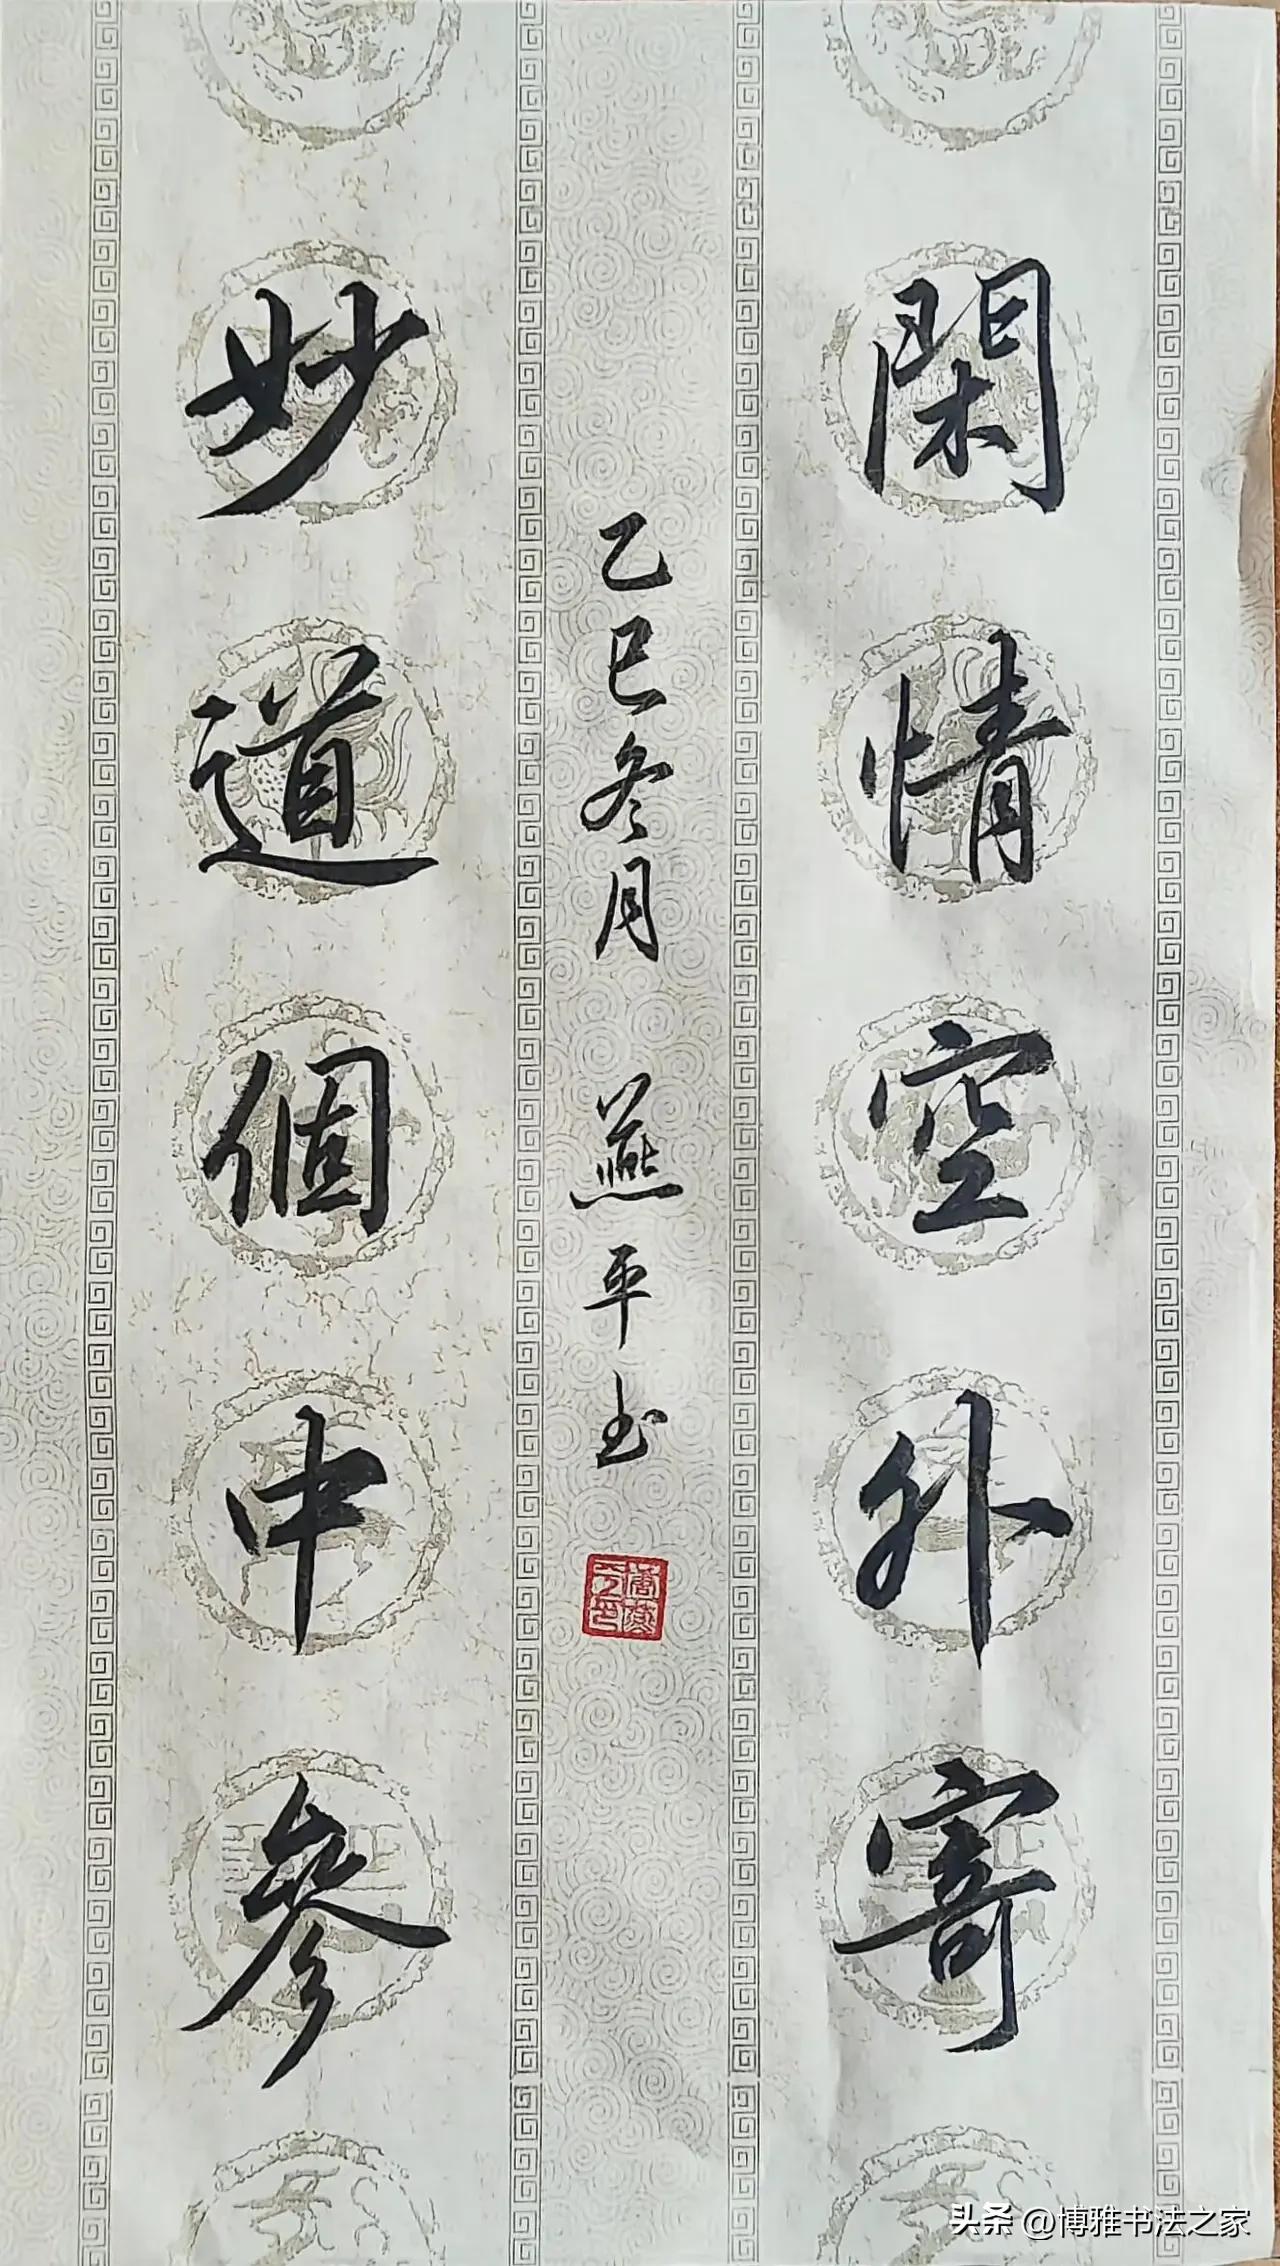 閑情空外寄
妙道個中參
乙巳冬月 燕平书
头条 @博雅书法之家